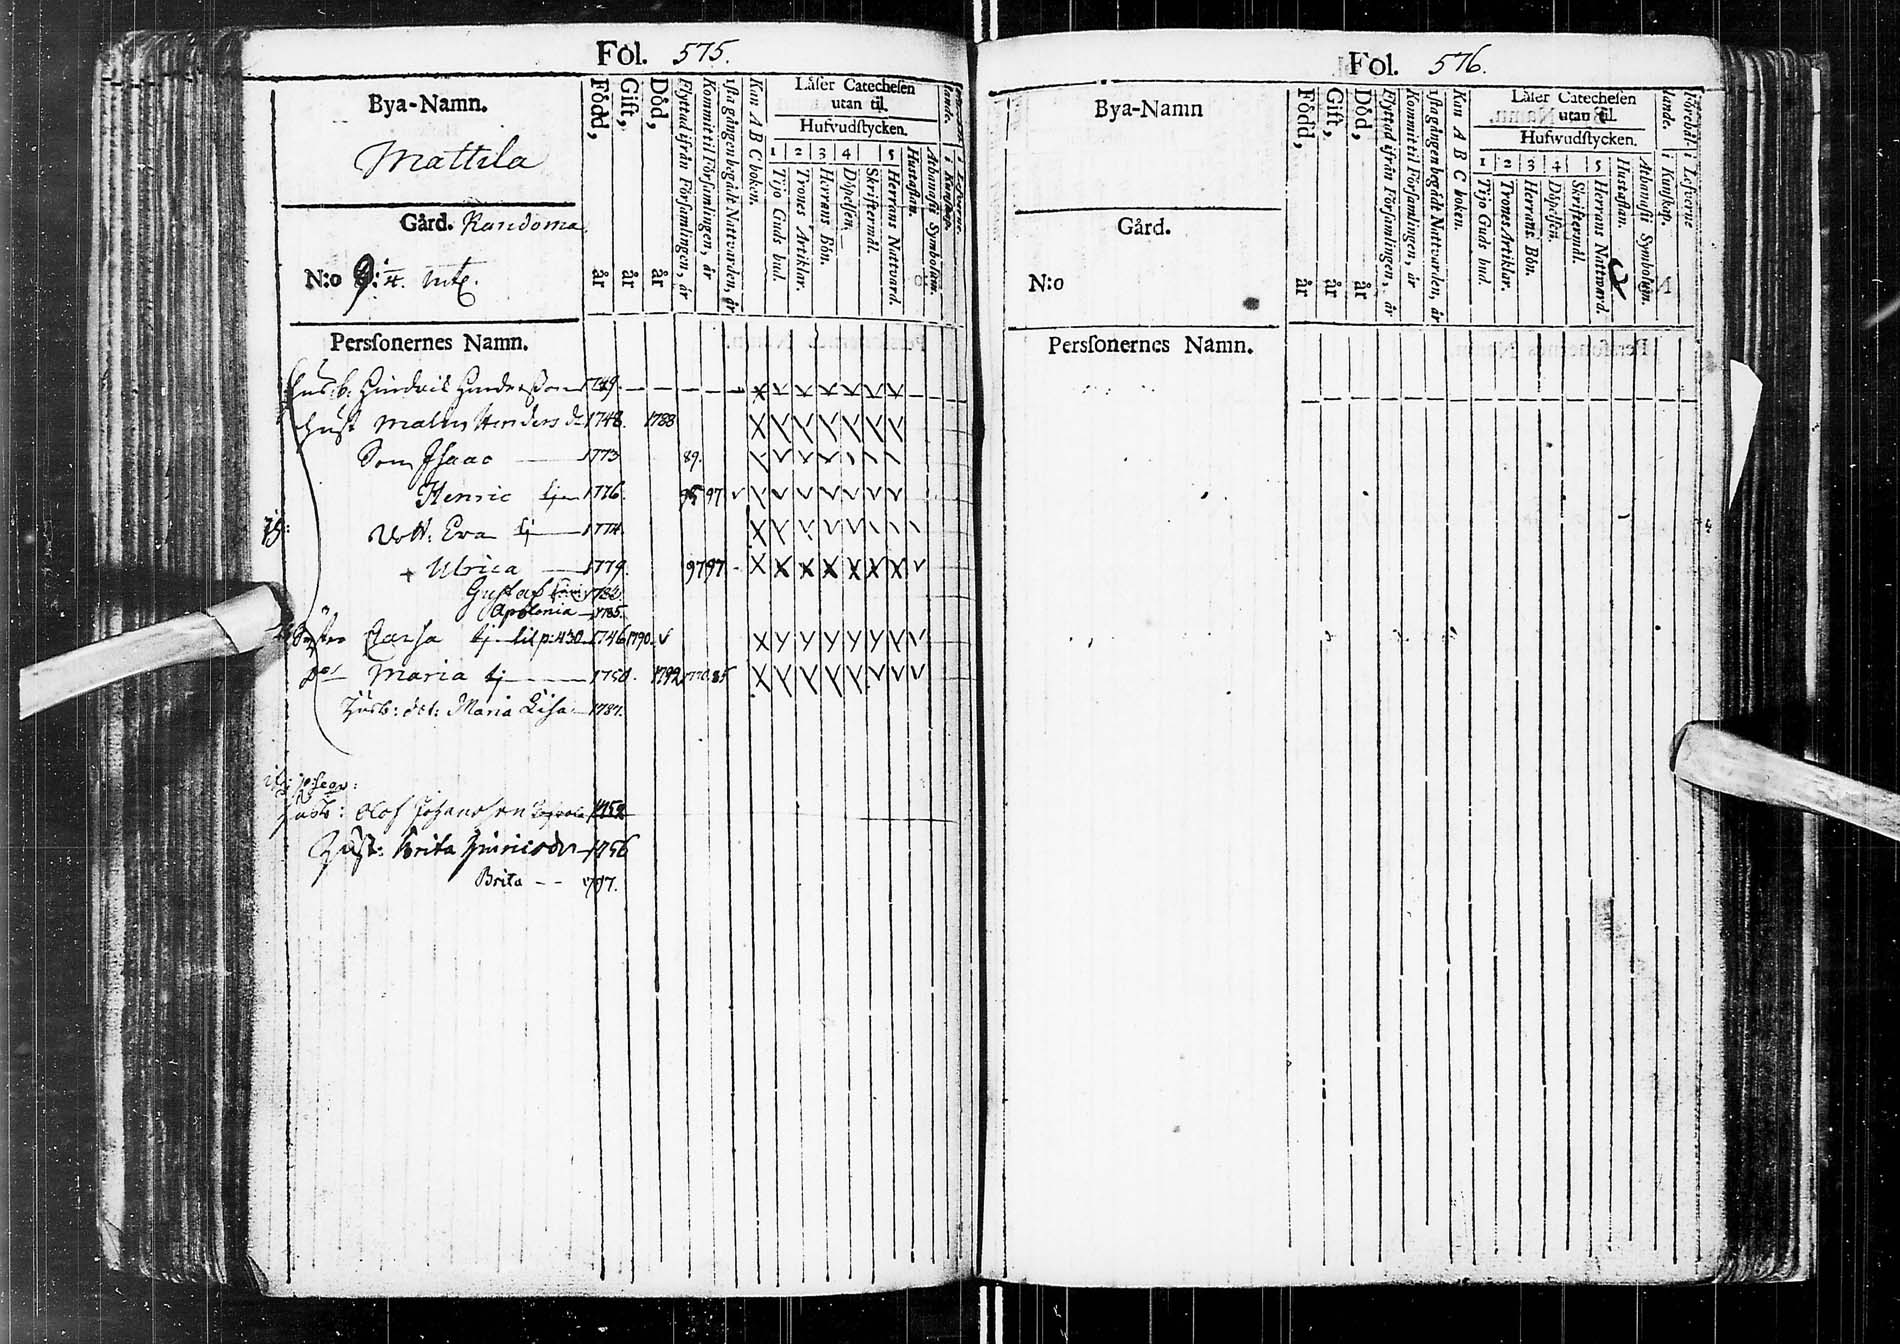 Fol. 575.
Bya-Namn.
Mattila
Gård. Randoma
N:o 9:
Född, år
Gift, år
Död, år
Flyttad ifrån Församlingen, år
Kommit til Församlingen, år
1sta gången begådt Nattvarden, år
Kan A B C boken.
Läser Catechesen
utan til.
Hufvudstycken.
1 2 3 4 5
Tijo Guds bud.
Trones Artiklar.
Herrans Bön.
Döpelsen.
Skriftermål.
Herrans Nattvard.
Hustaflan.
Athanasii Symbolum.
i Kunskap.
i Lefverne.
Personernes Namn.
Husb: Hindrik Hindersson 1749.
Hust Malin Henders d 1748. 1788
Son Isaac 1773 89.
Henric tj 1776. 95 97
Dott: Eva tj 1774.
+ Ulrica 1779. 97 97
Gustaf 1782.
Apolonia 1785.
Syster Carsa tj til p: 430 1746 1790.
Maria tj 1750. 1792
Husb: dot: Maria Lisa 1787.
Husb: Olof Johansson 1752
Hust: Brita Hinricsdr 1756
Brita 1797.
Fol. 576.
Bya-Namn
Gård.
N:o
Född, år
Gift, år
Död, år
Flyttad ifrån Församlingen, år
Kommit til Församlingen, år
1sta gången begådt Nattvarden, år
Kan A B C boken.
Läser Catechesen
utan til.
Hufwudstycken.
1 2 3 4 5
Tijo Guds bud.
Trones Artiklar.
Herrans Bön.
Döpelsen.
Skriftermål.
Herrans Nattvard.
Hustaflan.
Athanasii Symbolum.
Förehål-
lande.
i Kunskap.
i Lefverne
Personernes Namn.